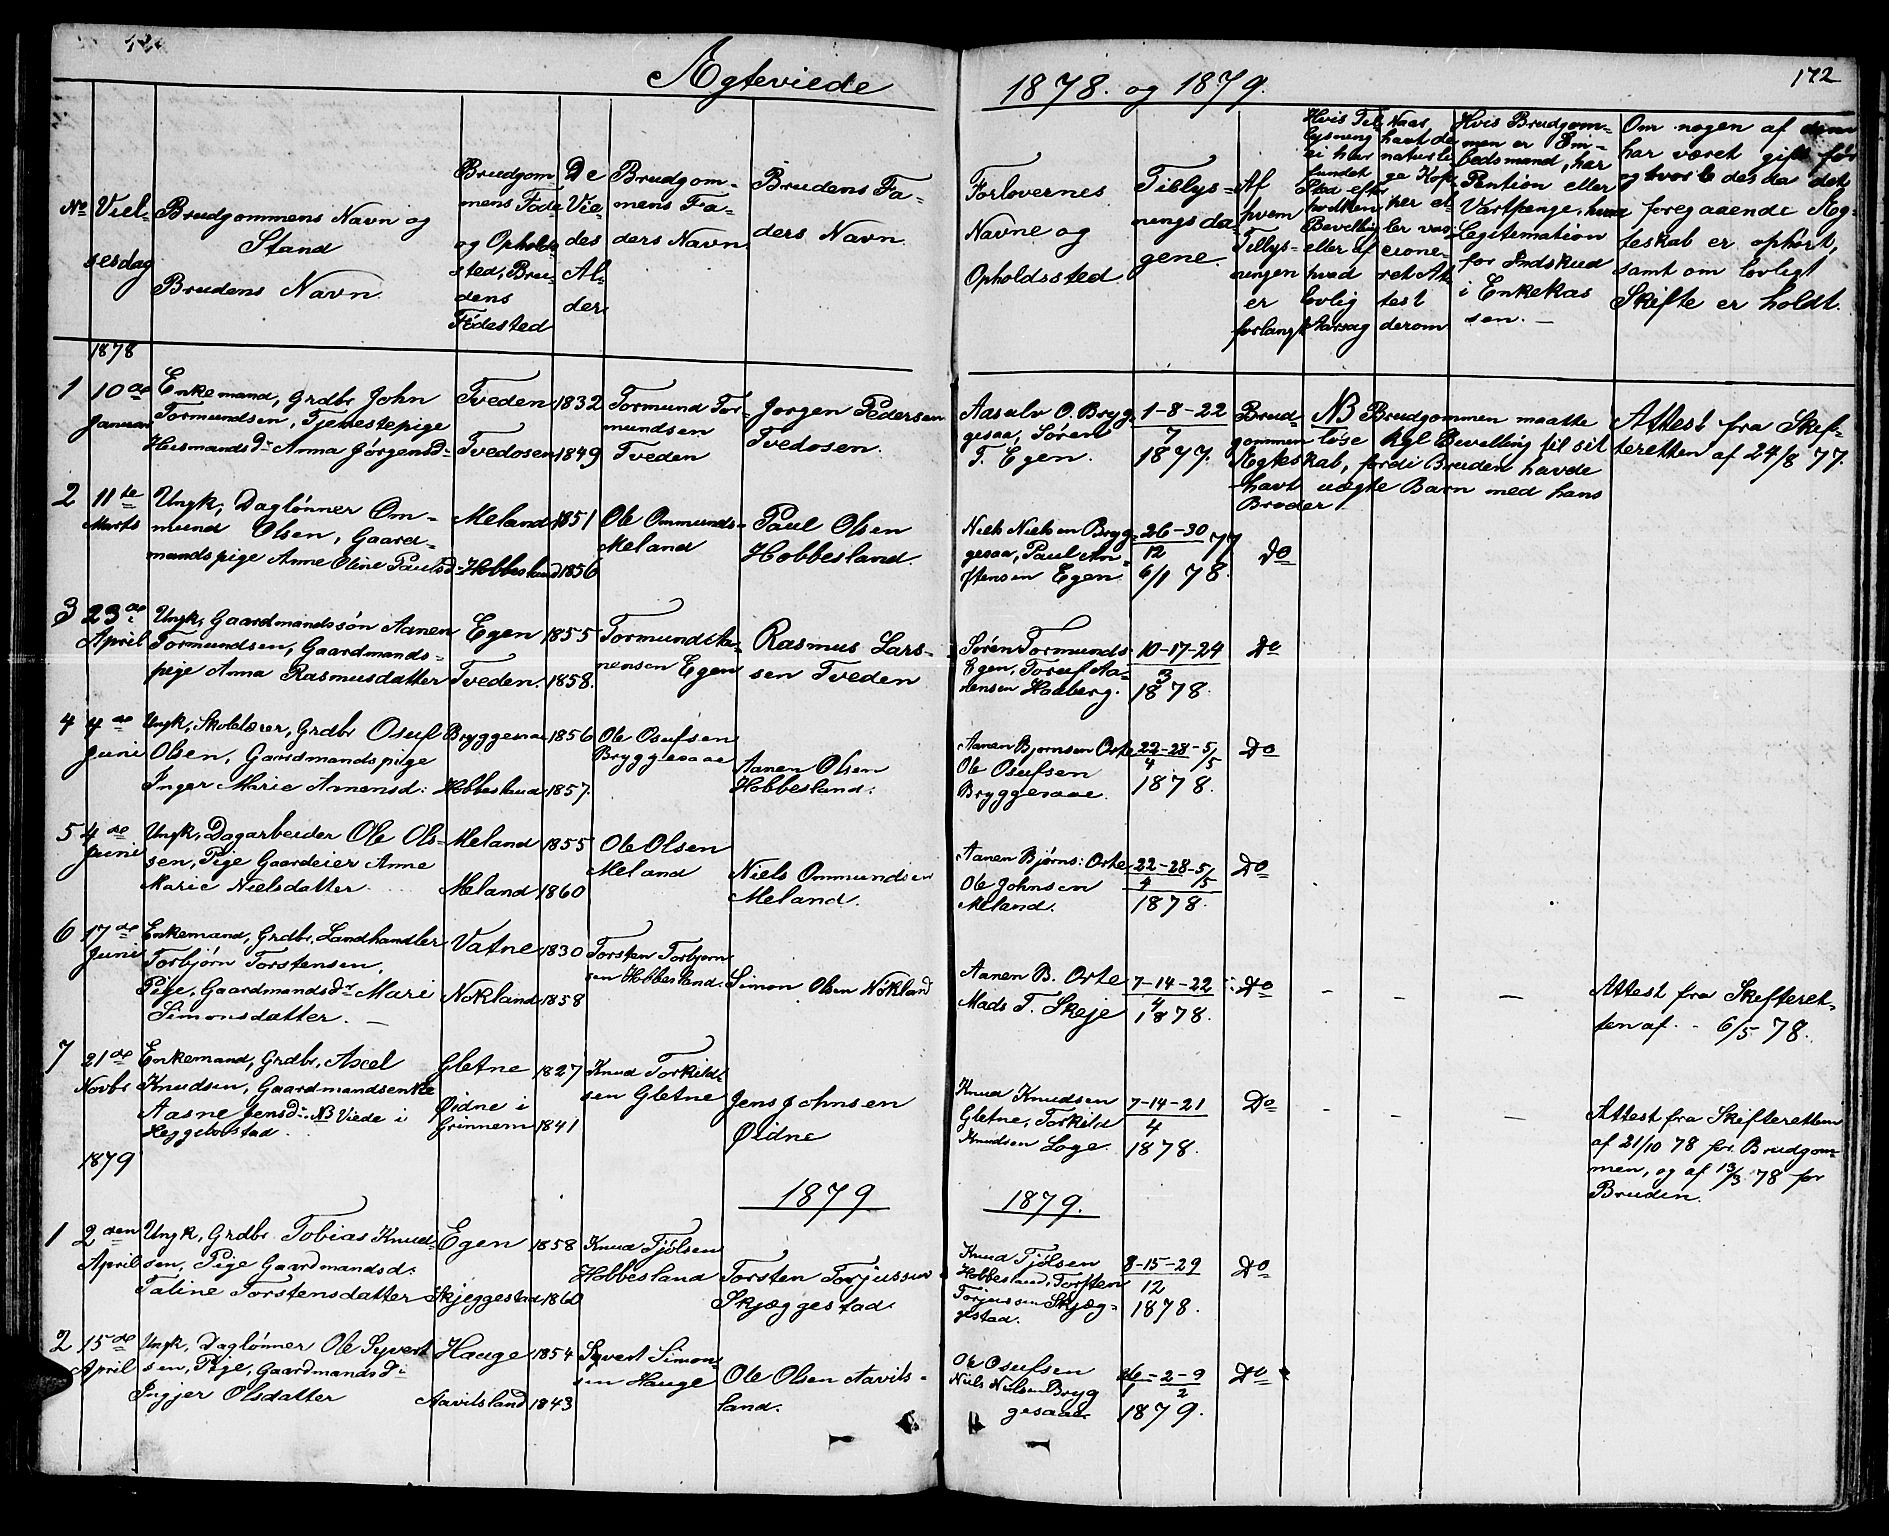 Ægteviede
1878. og 1879.
172
No
Viel-
sesdag
Brudgommens Navn og
Stand
Brudens Navn.
Brudgom
mens Føde
og Opholds
sted, Bru-
dens
Fødested
De
Vie-
des
Al-
der
Brudgom-
mens Fa-
ders Navn
Brudens Fa-
ders Navn.
Forlovernes
Navne og
Opholdssted.
Tillys-
ningsda-
gene.
Af
hvem
Tillys-
ningen
er
forlangt
Hvis Til-
lysning
ei har
fundet
Sted efter
hvilken
Bevelling
eller af
hvad
lovlig
Aarsag
Naar
havt de
naturli-
ge Kop-
per el-
ler vac-
cione-
ret At-
test
derom
Hvis Brudgom-
men er Em-
bedsmand, har
Pention eller
Vartpenge, hvad
Legitemation
for Indskud
i Enkekas
sen. —
Om nogen af dem
har været gift før
og hvorledes da det
foregaaende Æg-
teskab er ophørt,
samt om lovligt
Skifte er holdt.
1878
1 10de Januar
Enkemand, Grdbr John
Tormundsen, Tjenestepige
Husmandsdr Anna Jørgensd-
Tveden 1832
Tvedosen 1849
Tormund Tor-
mundsen
Tveden
Jørgen Pedersen
Tvedosen.
Aasulv O. Bryg-
gesaa, Søren
T. Egen.
1-8-22
7
1877.
Brud-
gommen
NB Brudgommen maatte
løse Kgl Bevelling til sit
Ægteskab, fordi Bruden havde
havt uægte Barn med hans
Broder.
Attest fra Skef-
teretten af 24/8 77.
2 11te Marts
Ungk, Daglønner Om-
mund Olsen, Gaard-
mandspige Anne Oline Paulsd-
Meland 1851
Hobbesland 1856
Ole Ommunds-
Meland
Paul Olsen
Hobbesland.
Niels Nielsen Bryg-
gesaa, Paul An-
ftensen Egen.
26-30 77
12
6/1 78.
Do
3 23de April
Ungk, Gaardmandssøn Aanen
Tormundsen, Gaardmands-
pige Anna Rasmusdatter
Egen 1855
Tveden. 1858.
Tormund Aa-
nensen Egen
Rasmus Lars-
sen Tveden
Søren Tormunds-
Egen, Toruf Aa-
nensen Haaberg.
10-17-24
3
1878.
Do
4 4de Juni
Ungk, Skolelærer, Grdbr Osuf
Olsen, Gaardmandspige
Inger Marie Aanensd:
Bryggesaa 1856
Hobbesland 1857.
Ole Osufsen
Bryggesaae
Aanen Olsen
Hobbesland.
Aanen Bjørnsen Orte
Ole Osufsen
Bryggesaae.
22-28-5/5
4
1878.
Do
5 4de Juni
Ungk, Dagarbeider Ole Ols-
sen, Pige Gaardeier Anne
Marie Nielsdatter
Meland 1855
Meland 1860
Ole Olsen
Meland
Niels Ommundsen
Meland.
Aanen Bjørns: Orte
Ole Johnsen
Meland.
22-28-5/5
4
1878.
Do
6 17de Juni
Enkemand, Grdbr, Landhandler
Torbjørn Torstensen,
Pige, Gaardmandsdr Mari
Simonsdatter. —
Vatne 1830
Nøkland 1858
Torsten Torbjørn
sen Hobbesland.
Simon Olsen Nøkland
Aanen B. Orte
Mads T. Skeje
7-14-22
4
1878.
Do - - —
Attest fra Skefteret-
ten af - 6/5 78.
7 21de Novbr
Enkemand, Grdbr, Axel
Knudsen, Gaardmandsenke
Aasne Jensd- NB Viede i
Heggebostad.
Gletne 1827
Øidne i
Grinnem 1841
Knud Torkild-
sen Gletne
Jens Johnsen
Øidne
Knud Knudsen
Gletne, Torkild
Knudsen Loge.
7-14-21
4
1878.
Do - - —
Attest fra Skefteretten
af 21/10 78 for Brudgom-
men, og af 13/3 78 for
Bruden.
1879
1879
1879.
1 2den April
Ungk, Grdbr. Tobias Knud-
sen, Pige Gaardmandsd.
Taline Torstensdatter
Egen 1858
Skjeggestad 1860
Knud Tjølsen
Hobbesland
Torsten Torjussen
Skjæggestad.
Knud Tjølsen
Hobbesland, Torften
Torjussen Skjæg-
gestad.
8-15-29
12
1878.
Do
2 15de April
Ungk, Daglønner Ole Syvert
sen, Pige, Gaardmandsd:
Ingjer Olsdatter
Hauge 1854
Aavitsland 1843
Syvert Simon-
sen Hauge
Ole Olsen Aavits-
land.
Ole Osufsen
Niels Nielsen Bryg
gesaae
26-2-9
1 2
1879.
Do